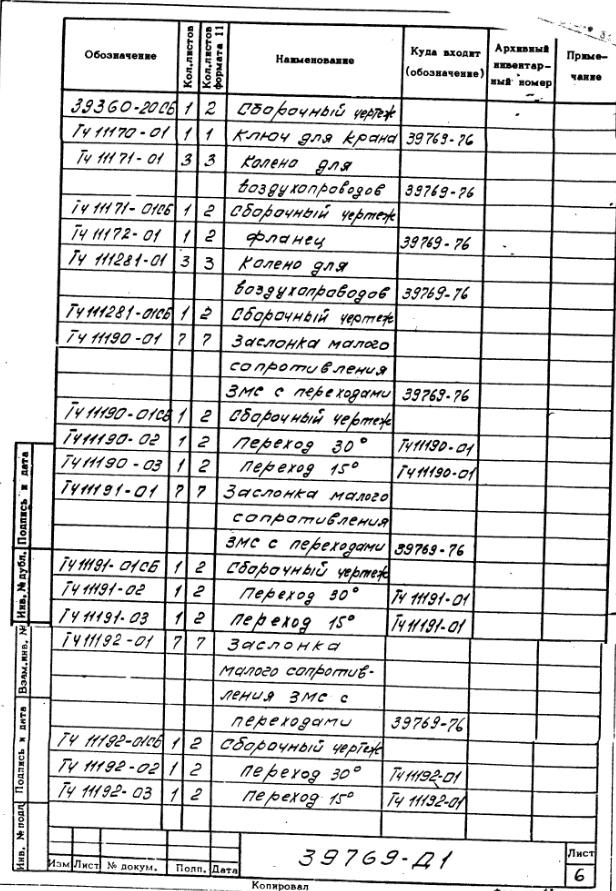 Обозначение Кол.листов Кол.листов формата 11 Наименование Куда входит (обозначение) Архивный инвентар-ный номер Приме-чание
39360-20СБ 1 2 Сборочный чертеж
ТЧ 11170-01 1 1 Ключ для крана 39769-76
ТЧ 11171-01 3 3 Колено для
воздухопроводов 39769-76
ТЧ 11171-01СБ 1 2 Сборочный чертеж
ТЧ 11172-01 1 2 Фланец 39769-76
ТЧ 111281-01 3 3 Колено для
воздухопроводов 39769-76
ТЧ 111281-01СБ 1 2 Сборочный чертеж
ТЧ 11190-01 7 7 Заслонка малого
сопротивления
ЗМС с переходами 39769-76
ТЧ 11190-01СБ 1 2 Сборочный чертеж
ТЧ 11190-02 1 2 Переход 30° ТЧ 11190-01
ТЧ 11190-03 1 2 Переход 15° ТЧ 11190-01
ТЧ 11191-01 7 7 Заслонка малого
сопротивления
ЗМС с переходами 39769-76
ТЧ 11191-01СБ 1 2 Сборочный чертеж
ТЧ 11191-02 1 2 Переход 30° ТЧ 11191-01
ТЧ 11191-03 1 2 Переход 15° ТЧ 11191-01
ТЧ 11192-01 7 7 Заслонка
малого сопротив-
ления ЗМС с
переходами 39769-76
ТЧ 11192-01СБ 1 2 Сборочный чертеж
ТЧ 11192-02 1 2 Переход 30° ТЧ 11192-01
ТЧ 11192-03 1 2 Переход 15° ТЧ 11192-01
Инв. № подл. Подпись и дата Взам.инв. № Инв. № дубл. Подпись и дата
Изм Лист № докум. Подп. Дата
39769-Д1
Лист
6
Копировал